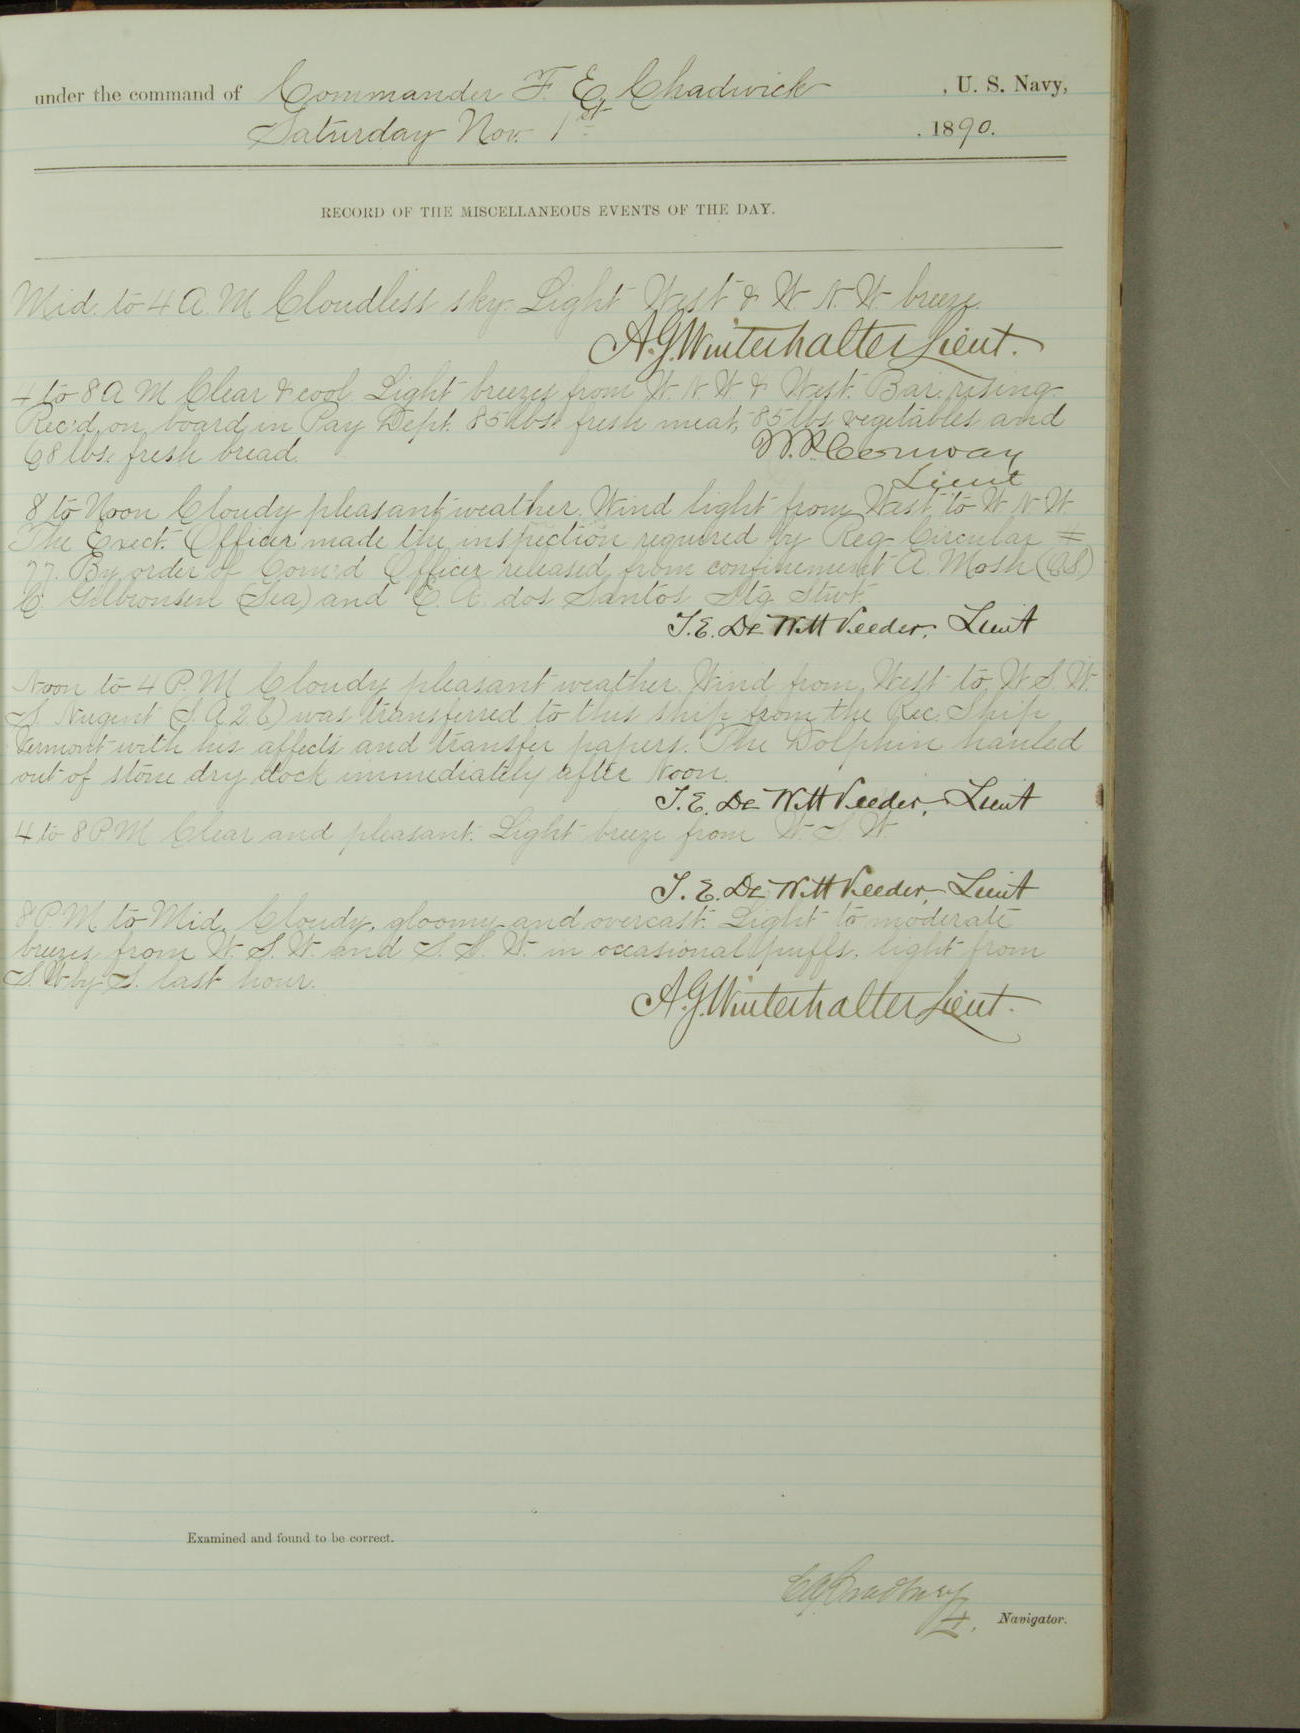 under the command of Commander F. E. Chadwick, U. S. Navy,
Saturday Nov. 1st. 1890.
RECORD OF THE MISCELLANEOUS EVENTS OF THE DAY.
Mid. to 4 A. M. Cloudless sky. Light West & W. N. W. breeze.
A.G. Winterhalter Lieut.
4 to 8 A M Clear & cool. Light breezes from W. N. W & West. Bar. rising.
Rec'd on board in Pay Dept. 85 lbs. fresh meat, 85 lbs vegetables and
68 lbs. fresh bread.
W.P. Conway
Lieut
8 to Noon Cloudy pleasant weather. Wind light from West to W N W
The Exect. Officer made the inspection required by Reg Circular #
77. By order of Com'rd Officer released from confinement A. Mosh
(Sea) and E. A. dos Santos Stg. Stwd.
T. E. De Witt Veeder, Lieut
Noon to 4 P. M Cloudy pleasant weather. Wind from West to W. S. W.
S. Nugent (S. A. 2 C) was transferred to this ship from the Rec. Ship
Vermont with his affects and transfer papers. The Dolphin hauled
out of stone dry dock immediately after Noon.
T. E. De Witt Veeder, Lieut
4 to 8 P M Clear and pleasant. Light breeze from W. S. W.
T. E. De Witt Veeder, Lieut
8 P. M. to Mid. Cloudy, gloomy and overcast. Light to moderate
breezes from W. S. W. and S. S. W. in occasional puffs, light from
S. W by S. last hour.
A.G. Winterhalter Lieut.
Examined and found to be correct.
Navigator.